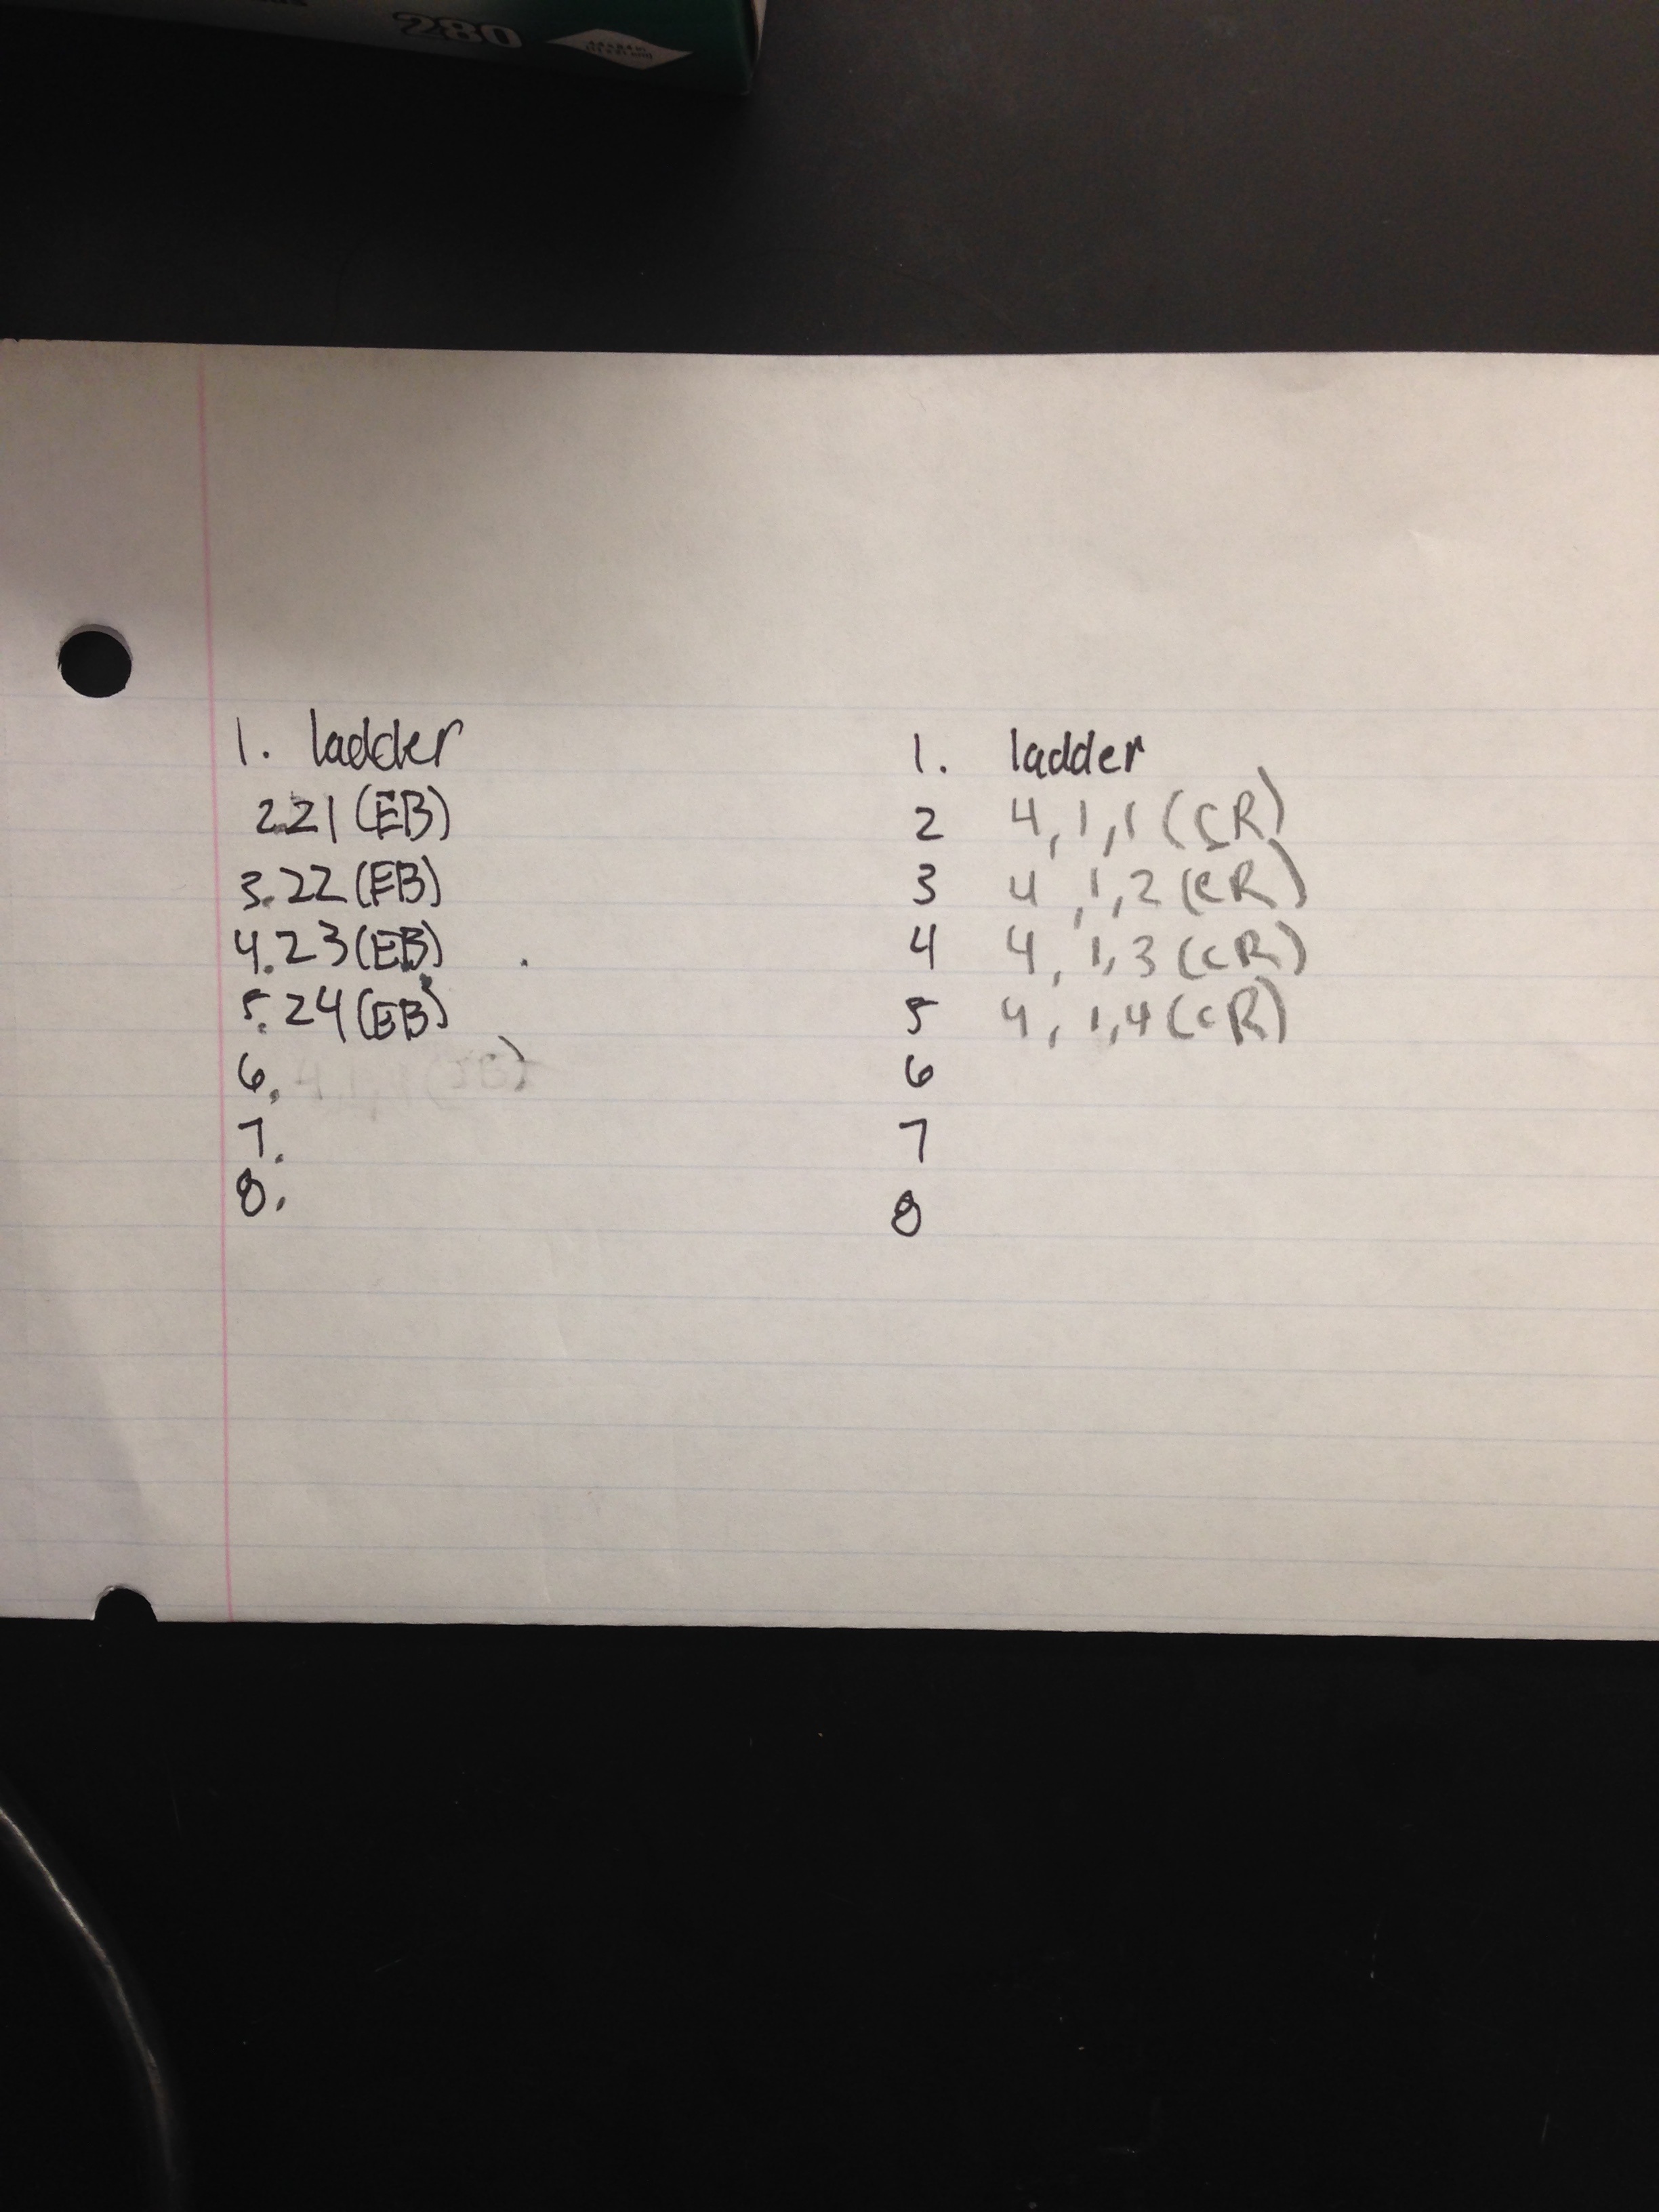 280
1. ladder
2.21 (EB)
3.22 (EB)
4.23 (EB)
5.24 (EB)
6.
7.
8.
1. ladder
2 4,1,1 (CR)
3 4,1,2 (CR)
4 4,1,3 (CR)
5 4,1,4 (CR)
6
7
8